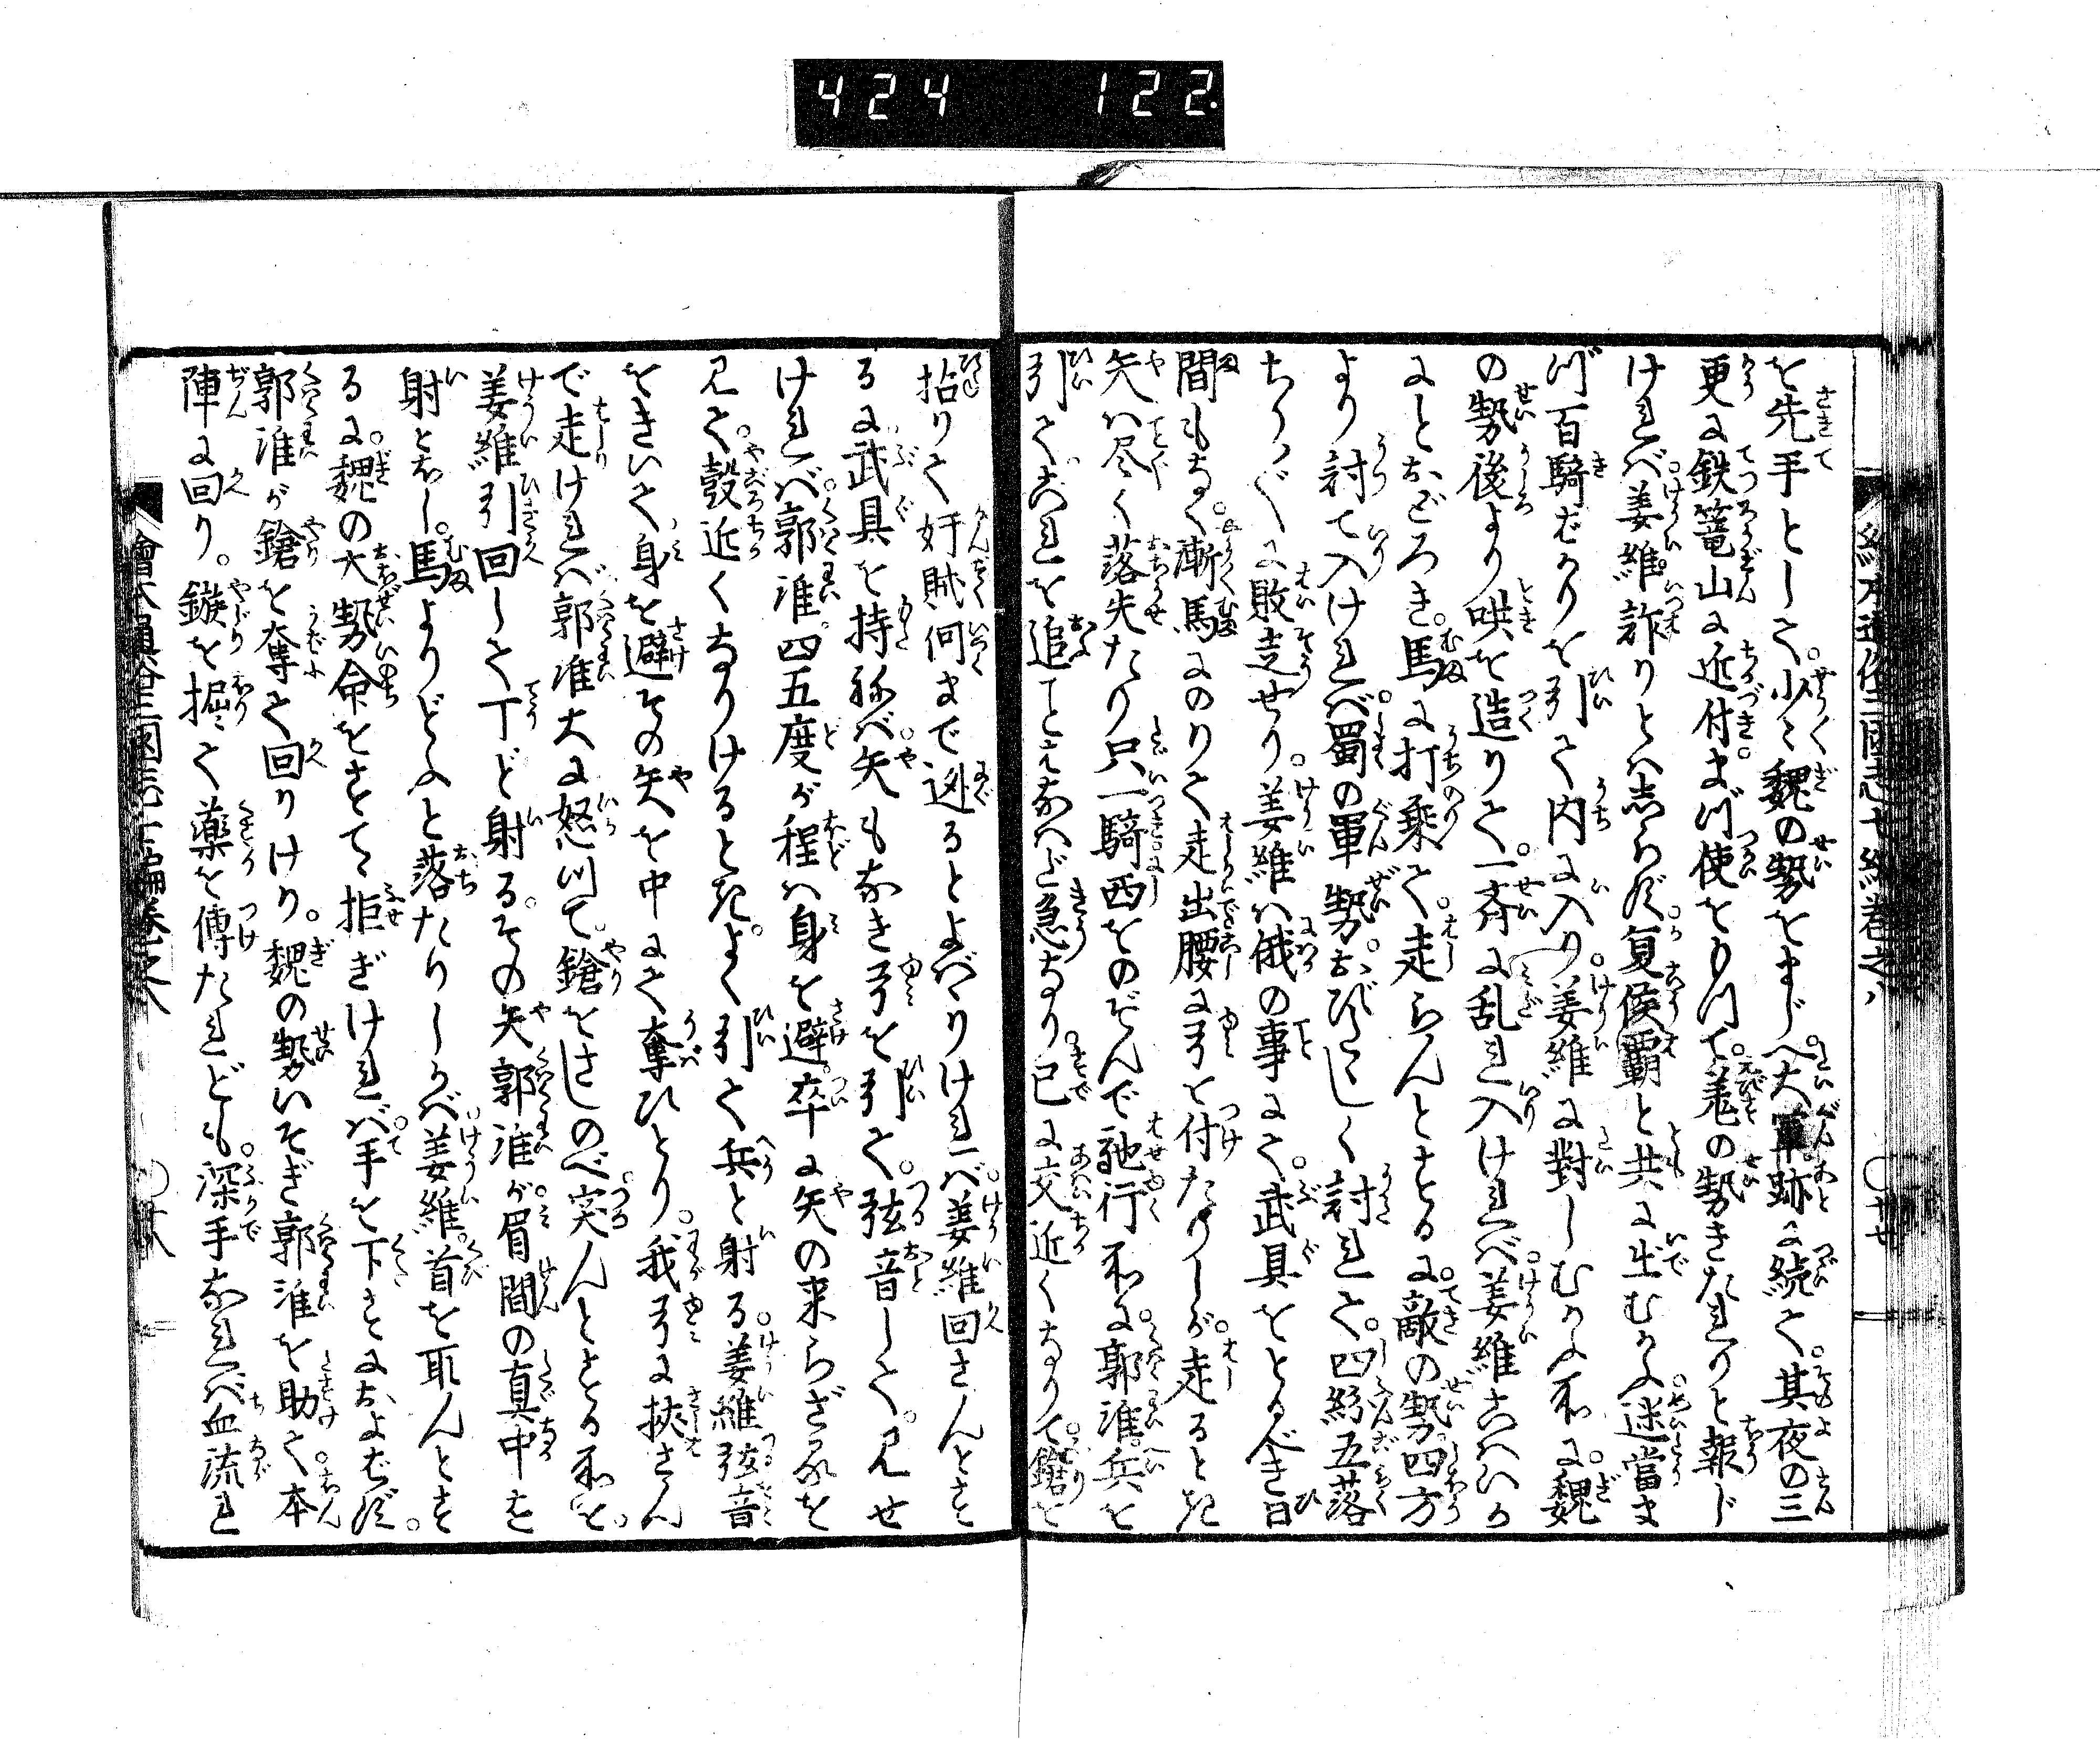 424 122
を先手として。少々魏の勢をまじへ大軍跡に続て。其夜の三
更に鉄篭山に近付。まづ使をもつて羌の勢きたれりと報じ
ければ。姜維詐りとハ志らず。夏侯覇と共に出むかふ。迷當ま
づ百騎ばかりを引て内に入り。姜維に對しむかふ所に。魏
の勢後より哄を造りて。一斉に乱れ入ければ。姜維こハいか
にとおどろき。馬に打乗て。走らんとするに。敵の勢四方
より討て入ければ。蜀の軍勢。おびたゞしく討れて。四紛五落
ちりぢりに敗走せり。姜維ハ俄の事にて。武具をとるべき
間もなく。漸馬にのりて走出腰に弓を付たりしが。走るとき
矢ハ尽く落失たり只一騎西をのぞんで馳行所に。郭淮。兵を
引て。これを追こと事なハだ急なり。已に交近くなりて。鎗を
拈りて奸賊何まで迯るとよバゝりければ。姜維回さんとす
るに武具を持ねば。矢もなき弓を引て。弦音して。見せ
ければ。郭淮。四五度が程ハ身を避。卒に矢の来らざるを
見て。彀近くなりけるとき。よく引て兵と射る。姜維弦音
をきいて身を避その矢を中にて奪ひとり。我弓に挟さん
で走ければ。郭淮大に怒つて。鎗をさしのべ突んとする所を。
姜維引回して丁ど射る。その矢郭淮が。眉間の真中を
射とをし。馬よりどふと落たりしかば。姜維。首を取んとす
るに。魏の大勢命をすてゝ拒ぎければ。手を下すにおよばず。
郭淮が鎗を奪て回りけり。魏の勢いそぎ郭淮を助て。本
陣に回り。鏃を掘て薬を傅たれども。深手なれば血流れ